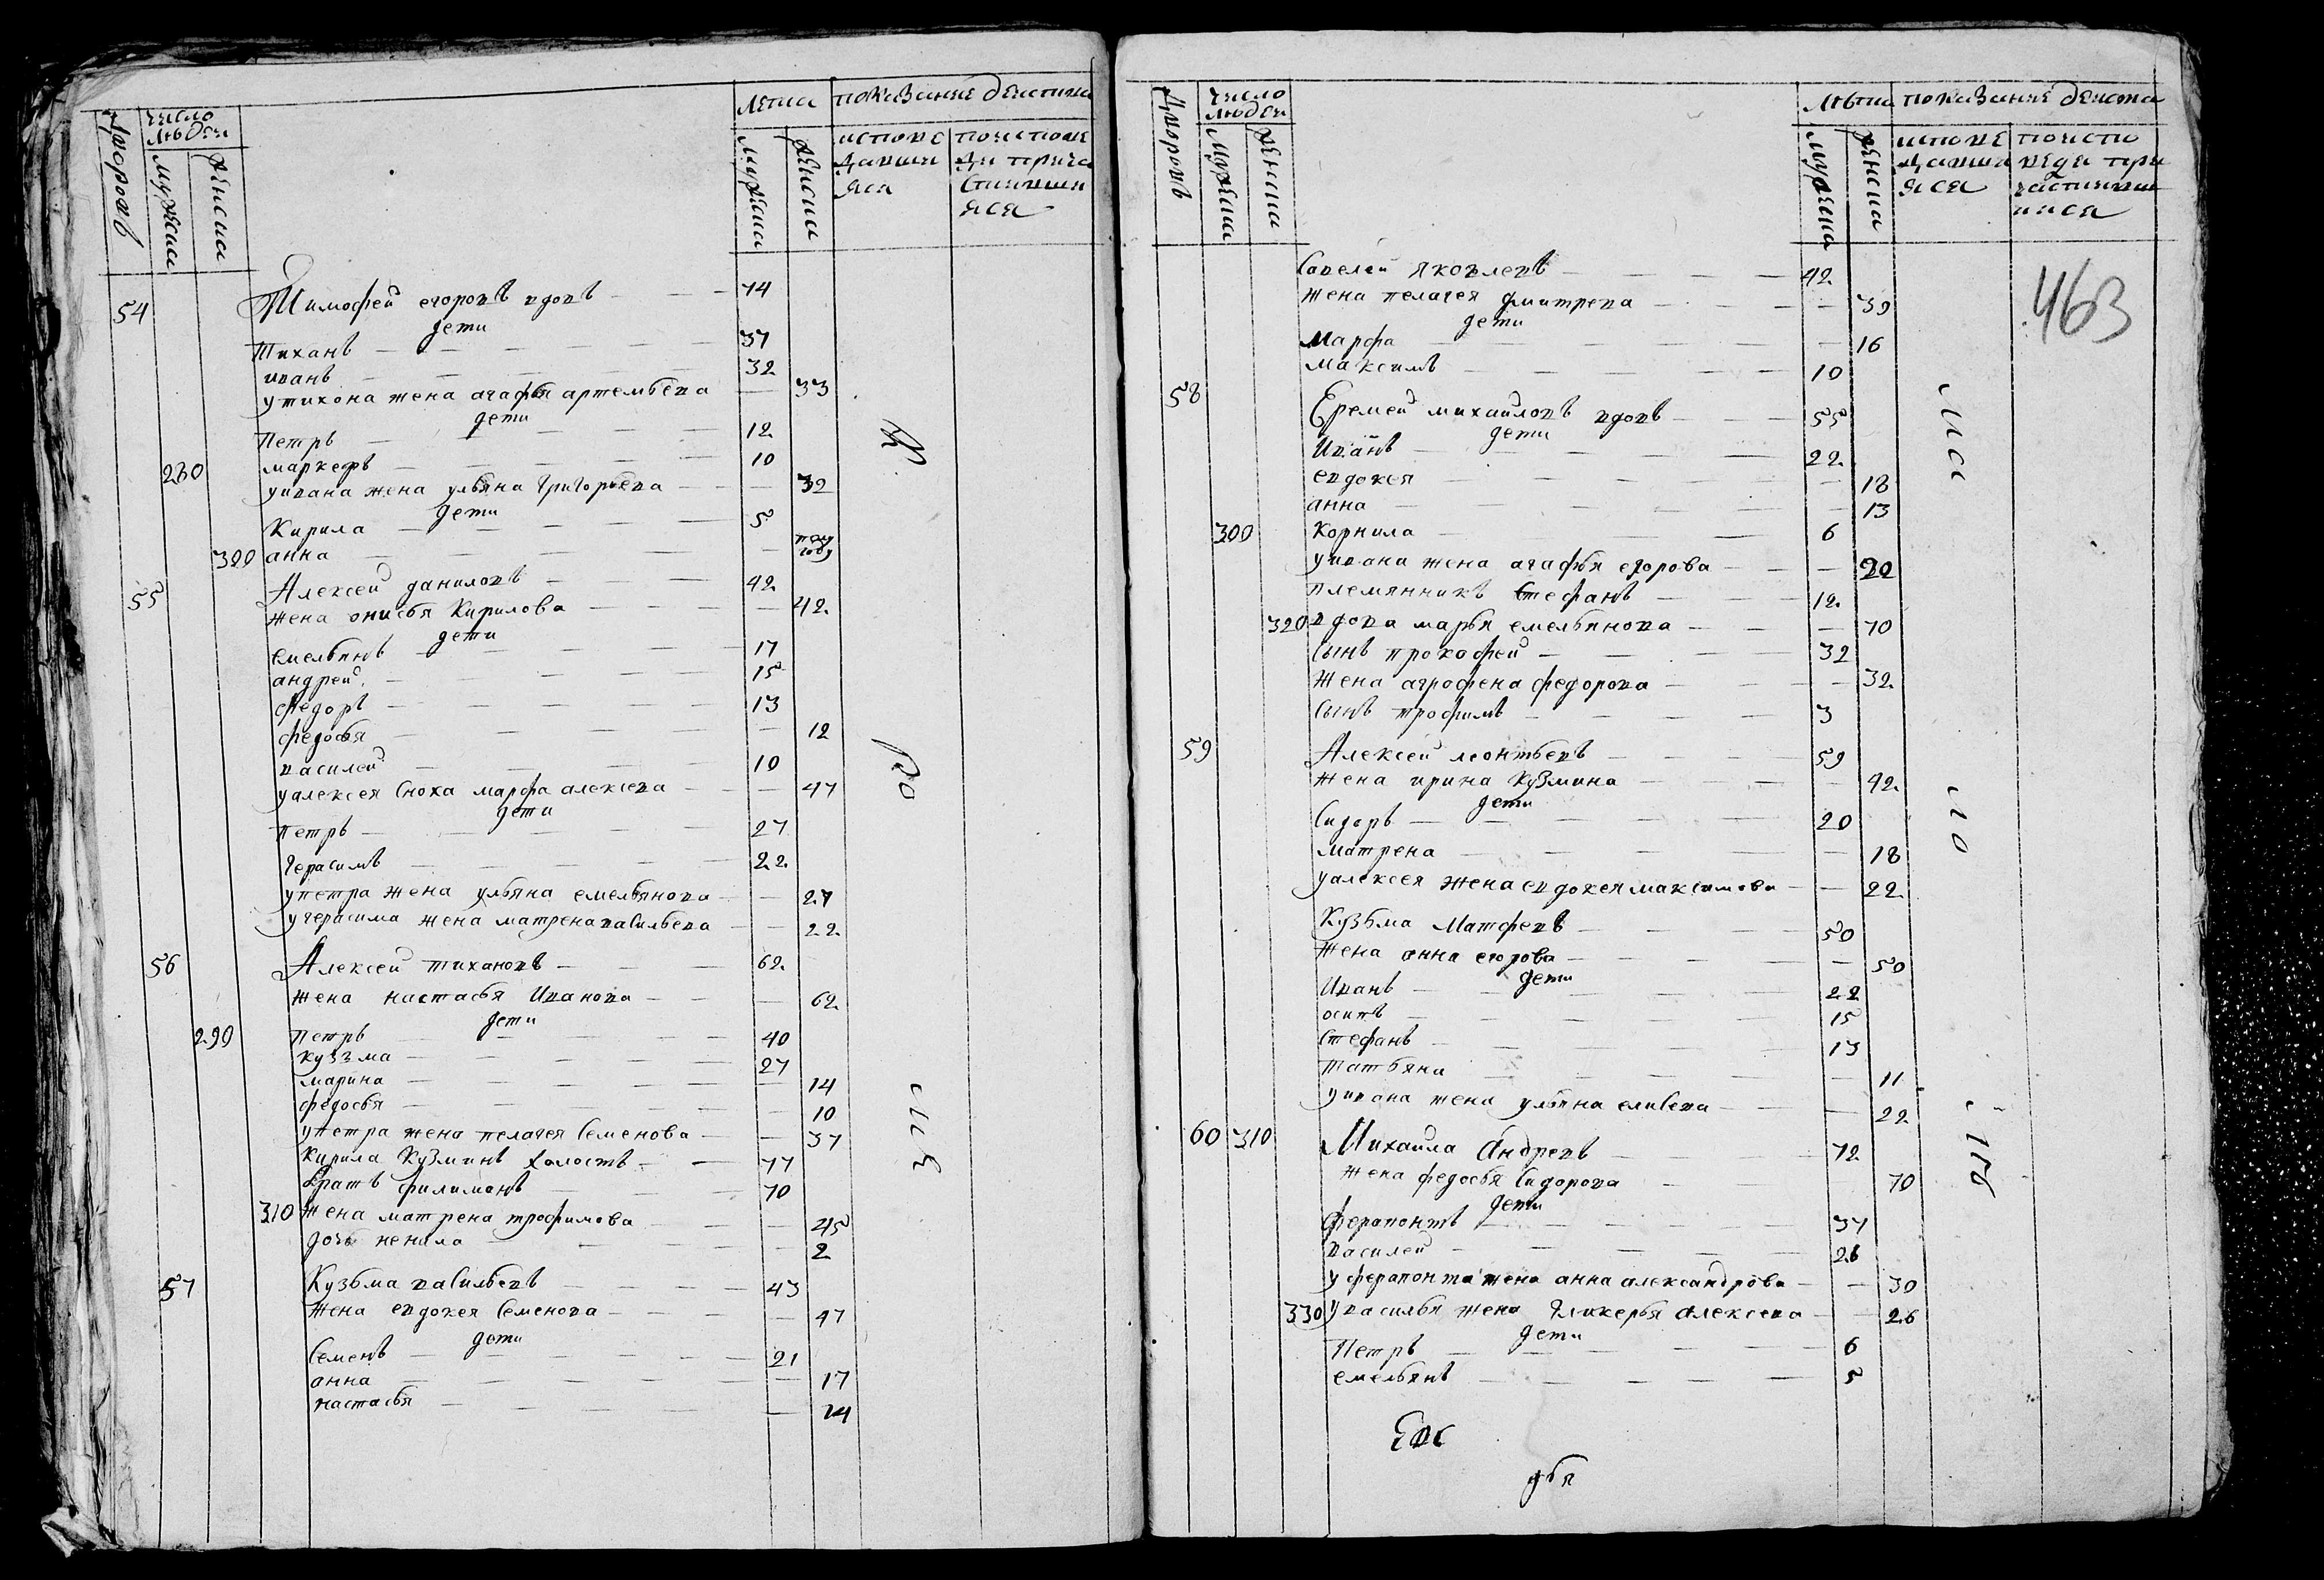 Дворовъ
число людей
мужеска
женска
лѣта
мужеска
женска
показание действа
исповедавшияся
поисповеди причастившияся
54 Тимофей егоровъ вдовъ — 74
дети
Тиханъ — 37
иванъ — 32
утихона жена агафья артемьева — 33
дети
Петръ — 12
280 маркефъ — 10
уивана жена ульяна григорьева — 32
дети
Кирила — 5
300 анна — полгоду
55 Алексей даниловъ — 42
жена онисья Кирилова — 42
дети
емельянъ — 17
андрей — 15
федоръ — 13
федосья — 12
василей — 10
уалексея сноха марфа алексева — 47
дети
петръ — 27
герасимъ — 22
упетра жена ульяна емельянова — 27
угерасима жена матрена васильева — 22
56 Алексей тихановъ — 62
жена настасья Иванова — 62
дети
290 Петръ — 40
кузма — 27
марина — 14
федосья — 10
упетра жена пелагея семенова — 37
Кирила Кузминъ холостъ — 77
братъ филимонъ — 70
310 жена матрена трофимова — 45
дочь ненила — 2
57 Кузьма васильевъ — 43
жена евдокея семенова — 47
дети
семенъ — 21
анна — 17
настасья — 14
В
ро
сия
Дворовъ
число людей
мужеска
женска
лѣта
мужеска
женска
показание действа
исповедавшияся
поисповеди причастившиися
463
савелей яковлевъ — 42
жена пелагея дмитрева — 39
дети
марфа — 16
максимъ — 10
58 Еремей михайловъ вдовъ — 55
дети
Иванъ — 22
евдокея — 18
анна — 13
300 Корнила — 6
уивана жена агафья егорова — 20
племянникъ стефанъ — 12
320 вдова марья емельянова — 70
сынъ прокофей — 32
жена аграфена федорова — 32
сынъ трофимъ — 3
59 Алексей леонтьевъ — 59
жена ирина кузмина — 42
дети
сидоръ — 20
матрена — 18
уалексея жена евдокея максимова — 22
Кузьма Матфевъ — 50
жена анна егорова — 50
дети
Иванъ — 22
осипъ — 15
стефанъ — 13
татьяна — 11
уивана жена ульяна елисева — 22
60 310 Михайла Андревъ — 72
жена федосья сидорова — 70
дети
ферапонтъ — 37
василей — 26
уферапонта жена анна александрова — 30
330 увасилья жена гликерья алексева — 26
дети
Петръ — 6
емельянъ — 5
Евс